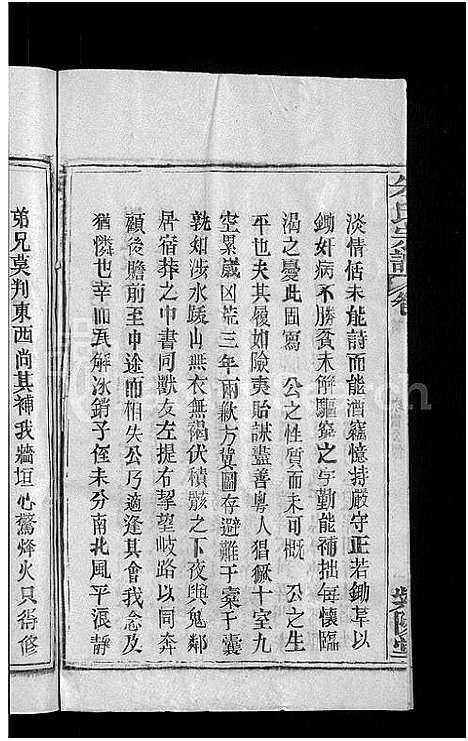 朱氏宗譜
卷
紫陽堂
淡情恬未能詩而能酒竊憶持嚴守正若鋤草以
鋤奸病不勝貧未解驅窮之与勤能補拙每懷臨
渴之憂此固寫 公之性質而未可概 公之生
平也夫其履如險夷貽謀盡善粵人猖獗十室九
空累歲凶荒三年兩歉方冀圖存避難于橐于囊
孰知涉水踐山無衣無褐伏積骸之下夜與鬼鄰
居宿莽之中書同獸友左提右挈望岐路以同奔
顧後瞻前至中途而相失公乃適逢其會我念及
猶憐也幸而瓦解冰銷子侄未分南北風平浪靜
弟兄莫判東西尚其補我牆垣心驚烽火只脩